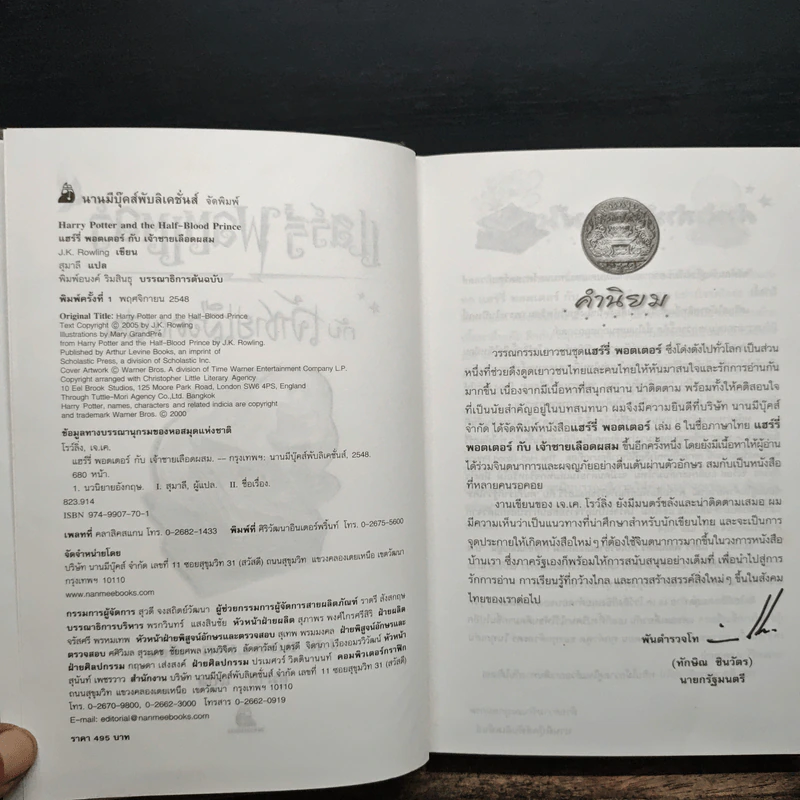 นานมีบุ๊คส์พับลิเคชั่นส์ จัดพิมพ์
Harry Potter and the Half-Blood Prince
แฮร์รี่ พอตเตอร์ กับ เจ้าชายเลือดผสม
J.K. Rowling เขียน
สุมาลี แปล
พิมพ์อนงค์ ริมสินธุ บรรณาธิการต้นฉบับ
พิมพ์ครั้งที่ 1 พฤศจิกายน 2548
Original Title: Harry Potter and the Half-Blood Prince
Text Copyright © 2005 by J.K. Rowling
Illustrations by Mary GrandPré
from Harry Potter and the Half-Blood Prince by J.K. Rowling.
Published by Arthur Levine Books, an imprint of
Scholastic Press, a division of Scholastic Inc.
Cover Artwork © Warner Bros. A division of Time Warner Entertainment Company L.P.
Copyright arranged with Christopher Little Literary Agency
10 Eel Brook Studios, 125 Moore Park Road, London SW6 4PS, England
Through Tuttle-Mori Agency Co.,Ltd. Bangkok
Harry Potter, names, characters and related indicia are copyright
and trademark Warner Bros. © 2000
ข้อมูลทางบรรณานุกรมของหอสมุดแห่งชาติ
โรว์ลิ่ง, เจ.เค.
แฮร์รี่ พอตเตอร์ กับ เจ้าชายเลือดผสม. -- กรุงเทพฯ: นานมีบุ๊คส์พับลิเคชั่นส์, 2548.
680 หน้า.
1. นวนิยายอังกฤษ. I. สุมาลี, ผู้แปล. II. ชื่อเรื่อง.
823.914
ISBN 974-9907-70-1
เพลทที่ คลาสิคสแกน โทร. 0-2682-1433 พิมพ์ที่ ศิริวัฒนาอินเตอร์พริ้นท์ โทร. 0-2675-5600
จัดจำหน่ายโดย
บริษัท นานมีบุ๊คส์ จำกัด เลขที่ 11 ซอยสุขุมวิท 31 (สวัสดี) ถนนสุขุมวิท แขวงคลองเตยเหนือ เขตวัฒนา
กรุงเทพฯ 10110
www.nanmeebooks.com
กรรมการผู้จัดการ สุวดี จงสถิตย์วัฒนา ผู้ช่วยกรรมการผู้จัดการสายผลิตภัณฑ์ ราตรี สังสกฤษ
บรรณาธิการบริหาร พรกวินทร์ แสงสินชัย หัวหน้าฝ่ายผลิต สุภาพร พงศ์ไกรศรีสิริ ฝ่ายผลิต
จรัสศรี พรหมเทพ หัวหน้าฝ่ายพิสูจน์อักษรและตรวจสอบ สุเทพ พรมมงคล ฝ่ายพิสูจน์อักษรและ
ตรวจสอบ ศศิวิมล สุระเดช ชัยยศพล เหมวิจิตร ลัดดาวัลย์ บุตรดี จิดาภา เรืองอมรวิวัฒน์ หัวหน้า
ฝ่ายศิลปกรรม กฤษดา เส่งสงค์ ฝ่ายศิลปกรรม ปรเมศวร์ วิตตินานนท์ คอมพิวเตอร์กราฟิก
สุนันท์ เพชรวาว สำนักงาน บริษัท นานมีบุ๊คส์ จำกัด เลขที่ 11 ซอยสุขุมวิท 31 (สวัสดี)
ถนนสุขุมวิท แขวงคลองเตยเหนือ เขตวัฒนา กรุงเทพฯ 10110
โทร. 0-2670-9800, 0-2662-3000 โทรสาร 0-2662-0919
E-mail: editorial@nanmeebooks.com
ราคา 495 บาท
คำนิยม
วรรณกรรมเยาวชนชุดแฮร์รี่ พอตเตอร์ ซึ่งโด่งดังไปทั่วโลก เป็นส่วน
หนึ่งที่ช่วยดึงดูดเยาวชนไทยและคนไทยให้หันมาสนใจและรักการอ่านกัน
มากขึ้น เนื่องจากมีเนื้อหาที่สนุกสนาน น่าติดตาม พร้อมทั้งให้คติสอนใจ
ที่เป็นนัยสำคัญอยู่ในบทสนทนา ผมจึงมีความยินดีที่บริษัท นานมีบุ๊คส์
จำกัด ได้จัดพิมพ์หนังสือแฮร์รี่ พอตเตอร์ เล่ม 6 ในชื่อภาษาไทย แฮร์รี่
พอตเตอร์ กับ เจ้าชายเลือดผสม ขึ้นอีกครั้งหนึ่ง โดยยังมีเนื้อหาให้ผู้อ่าน
ได้ร่วมจินตนาการและผจญภัยอย่างตื่นเต้นผ่านตัวอักษร สมกับเป็นหนังสือ
ที่หลายคนรอคอย
งานเขียนของ เจ.เค. โรว์ลิ่ง ยังมีมนตร์ขลังและน่าติดตามเสมอ ผม
มีความเห็นว่าเป็นแนวทางที่น่าศึกษาสำหรับนักเขียนไทย และจะเป็นการ
จุดประกายให้เกิดหนังสือใหม่ๆ ที่ต้องใช้จินตนาการมากขึ้นในวงการหนังสือ
บ้านเรา ซึ่งภาครัฐเองก็พร้อมให้การสนับสนุนอย่างเต็มที่ เพื่อนำไปสู่การ
รักการอ่าน การเรียนรู้ที่กว้างไกล และการสร้างสรรค์สิ่งใหม่ๆ ขึ้นในสังคม
ไทยของเราต่อไป
พันตำรวจโท
(ทักษิณ ชินวัตร)
นายกรัฐมนตรี